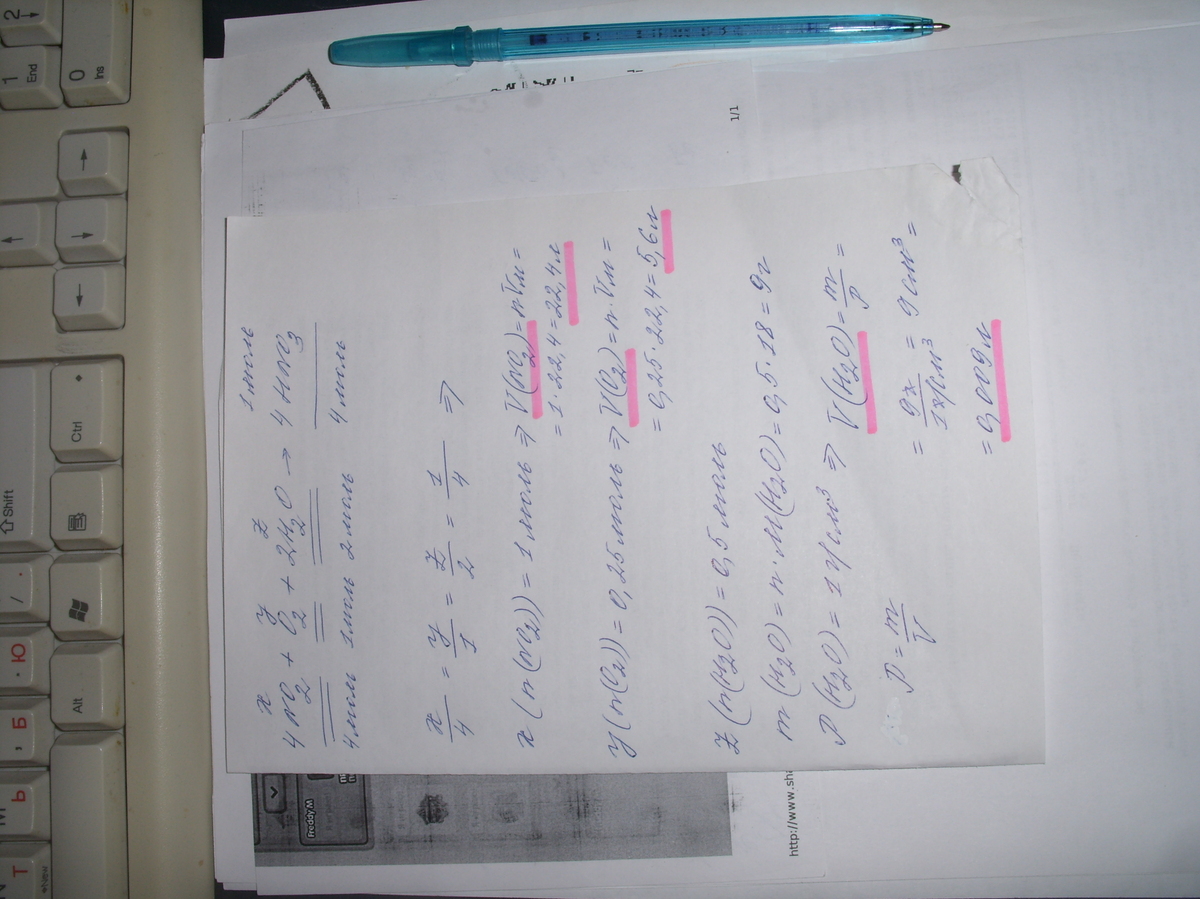 x y z 1 моль
4NO₂ + O₂ + 2H₂O → 4HNO₃
4 моль 1 моль 2 моль 4 моль
x/4 = y/1 = z/2 = 1/4 ⇒
x (n(NO₂)) = 1 моль ⇒ V(NO₂) = n·Vм =
= 1·22,4 = 22,4 л
y (n(O₂)) = 0,25 моль ⇒ V(O₂) = n·Vм =
= 0,25·22,4 = 5,6 л
z (n(H₂O)) = 0,5 моль
m (H₂O) = n·M(H₂O) = 0,5·18 = 9г
ρ (H₂O) = 1 г/см³ ⇒ V(H₂O) = m/ρ =
ρ = m/V = 9г/1г/см³ = 9 см³ =
= 0,009 л
1/1
http://www.sha
Freddy.M
2
1
End
0
Ins
Shift
Ctrl
Alt
/
.
. Ю
, Б
Ь
M
Т